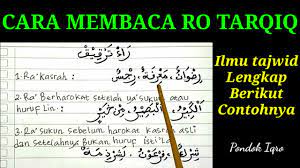 CARA MEMBACA RO TARQIQ
رَاءْ تَرْقِيْقْ
1. Ra' kasrah :
رِضْوَانٌ، مَعْرِفَةٌ، رِجْسٌ
2. Ra' Berharokat setelah ya' sukun atau
huruf Lin :
اَلْكَبِيْرُ، اَلْبَصِيْرُ، خَيْرٌ
3. Ra' sukun sebelum harokat kasrah asli
dan setelahnya Bukan huruf Isti'la'
فِرْعَوْنُ، لَشِرْذِمَةٌ
Ilmu tajwid
Lengkap
Berikut
Contohnya
Pondok Iqro